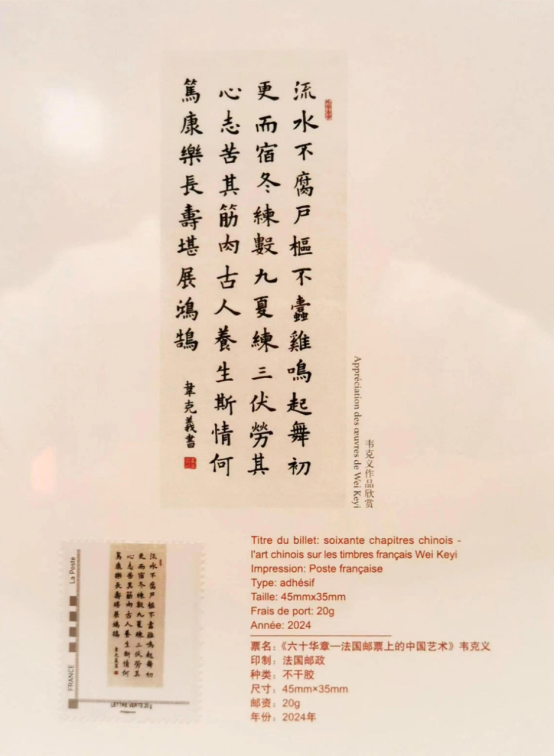 流水不腐戶樞不蠹雞鳴起舞初
更而宿冬練數九夏練三伏勞其
心志苦其筋肉古人養生斯情何
篤康樂長壽堪展鴻鵠 韋克義書
韦克义作品欣赏
Appréciation des œuvres de Wei Keyi
La Poste
FRANCE
流水不腐戶樞不蠹雞鳴起舞初
更而宿冬練數九夏練三伏勞其
心志苦其筋肉古人養生斯情何
篤康樂長壽堪展鴻鵠 韋克義書
LETTRE VERTE 20 g
Titre du billet: soixante chapitres chinois -
l'art chinois sur les timbres français Wei Keyi
Impression: Poste française
Type: adhésif
Taille: 45mmx35mm
Frais de port: 20g
Année: 2024
票名：《六十华章—法国邮票上的中国艺术》韦克义
印制：法国邮政
种类：不干胶
尺寸：45mm×35mm
邮资：20g
年份：2024年